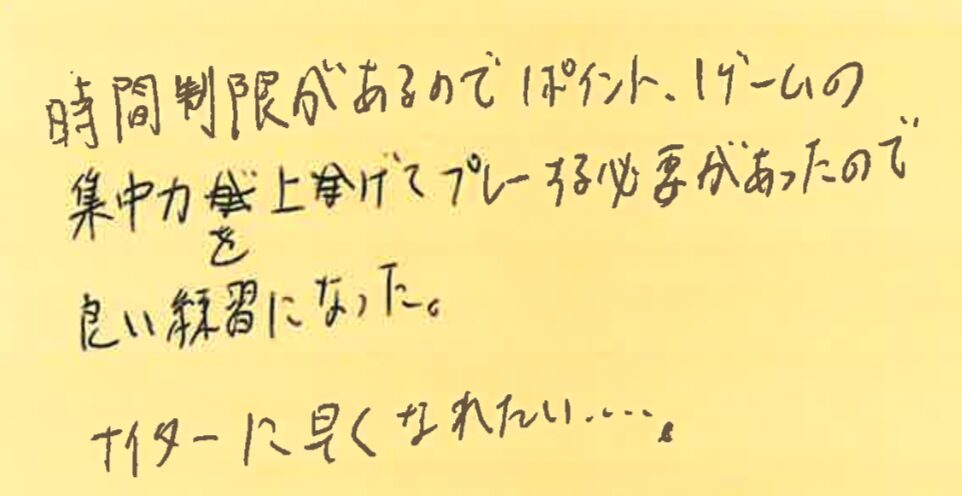 時間制限があるので1ポイント、1ゲームの
集中力を上げてプレーする必要があったので
良い練習になった。
ナイターに早くなれたい‥‥。